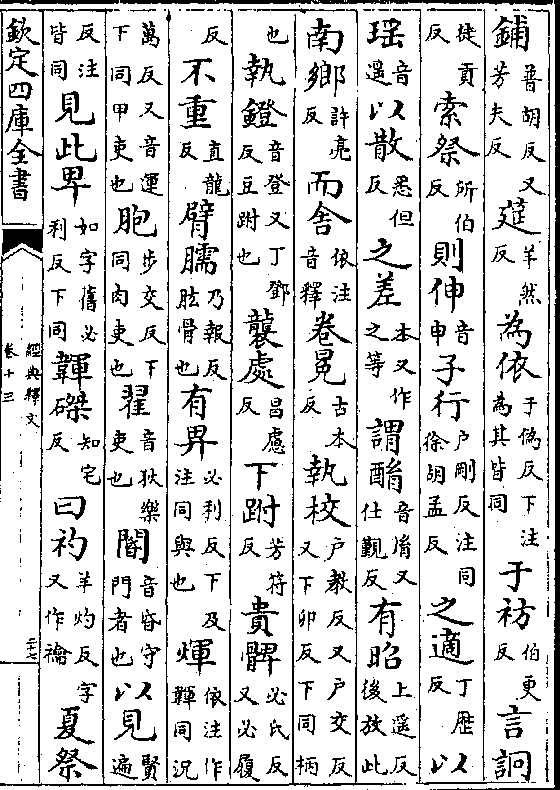 鋪普胡反又芳夫反筵羊然反為依于偽反下注為其皆同于祊伯更反言詷
徒貢反索祭所伯反則伸音申子行戶剛反注同徐胡孟反之適丁歷反以
瑶音遥以散悉但反之差本又作之等謂酳音胤又仕覲反有昭上遥反後放此
南鄉許亮反而舍依注音釋卷冕古本反執校戶教反又戶交反又下卯反下同柄
也執鐙音登又丁鄧反豆跗也襲處昌慮反下跗芳符反貴髀必氏反又必履
反不重直龍反臂臑乃報反肱骨也有畀必利反下及注同與也煇依注作韗同況
萬反又音運下同甲吏也胞步交反下同肉吏也翟音狄樂吏也閽音昏守門者也以見賢遍
反注皆同見此畀如字舊必利反下同韗磔知宅反曰礿羊灼反字又作禴夏祭
欽定四庫全書
經典釋文
卷十三
二十七